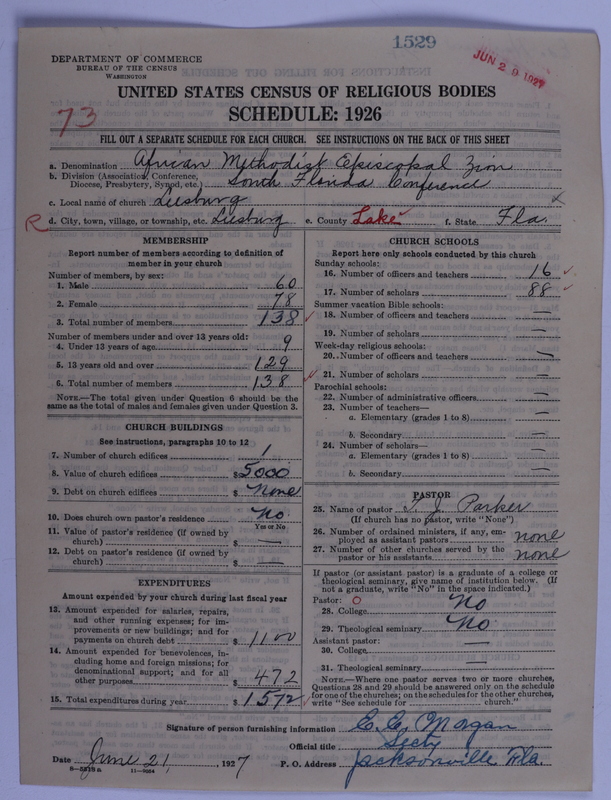 1529
JUN 29 1927
DEPARTMENT OF COMMERCE
BUREAU OF THE CENSUS
WASHINGTON
UNITED STATES CENSUS OF RELIGIOUS BODIES
SCHEDULE: 1926
73
FILL OUT A SEPARATE SCHEDULE FOR EACH CHURCH. SEE INSTRUCTIONS ON THE BACK OF THIS SHEET
a. Denomination African Methodist Episcopal Zion
b. Division (Association, Conference, Diocese, Presbytery, Synod, etc.) South Florida Conference
c. Local name of church Leesburg
R d. City, town, village, or township, etc. Leesburg e. County Lake f. State Fla.
MEMBERSHIP
Report number of members according to definition of member in your church
Number of members, by sex:
1. Male 60
2. Female 78
3. Total number of members 138
Number of members under and over 13 years old:
4. Under 13 years of age 9
5. 13 years old and over 129
6. Total number of members 138
NOTE.—The total given under Question 6 should be the same as the total of males and females given under Question 3.
CHURCH BUILDINGS
See instructions, paragraphs 10 to 12
7. Number of church edifices 1
8. Value of church edifices $5000
9. Debt on church edifices $ None
10. Does church own pastor's residence No
Yes or No
11. Value of pastor's residence (if owned by church) $ —
12. Debt on pastor's residence (if owned by church) $ —
EXPENDITURES
Amount expended by your church during last fiscal year
13. Amount expended for salaries, repairs, and other running expenses; for improvements or new buildings; and for payments on church debt $ 1100
14. Amount expended for benevolences, including home and foreign missions; for denominational support; and for all other purposes $ 472
15. Total expenditures during year $ 1572
CHURCH SCHOOLS
Report here only schools conducted by this church
Sunday schools:
16. Number of officers and teachers 16
17. Number of scholars 88
Summer vacation Bible schools:
18. Number of officers and teachers —
19. Number of scholars —
Week-day religious schools:
20. Number of officers and teachers —
21. Number of scholars —
Parochial schools:
22. Number of administrative officers —
23. Number of teachers—
a. Elementary (grades 1 to 8) —
b. Secondary —
24. Number of scholars—
a. Elementary (grades 1 to 8) —
b. Secondary —
PASTOR
25. Name of pastor J. Parker
(If church has no pastor, write "None")
26. Number of ordained ministers, if any, employed as assistant pastors none
27. Number of other churches served by the pastor or his assistants none
If pastor (or assistant pastor) is a graduate of a college or theological seminary, give name of institution below. (If not a graduate, write "No" in the space indicated.)
Pastor: O
28. College No
29. Theological seminary No
Assistant pastor: —
30. College —
31. Theological seminary —
NOTE.—Where one pastor serves two or more churches, Questions 28 and 29 should be answered only on the schedule for one of the churches; on the schedules for the other churches, write "See schedule for church."
Signature of person furnishing information C. C. Morgan
Official title Secty
Date June 21, 1927 P. O. Address Jacksonville Fla.